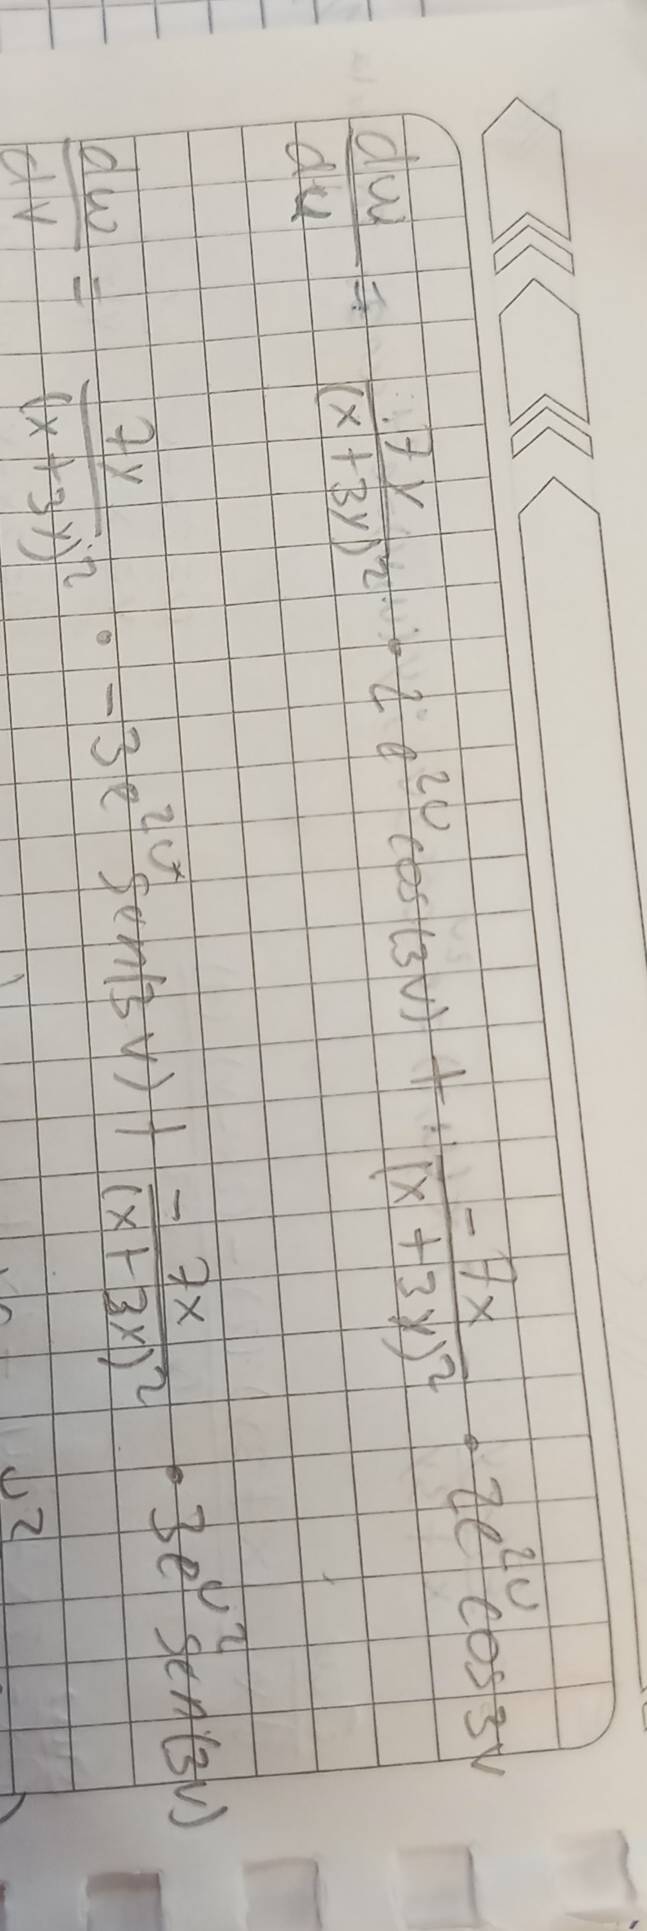 dw/du = 7y/(x+3y)² · 2e^2u cos(3v) + -7x/(x+3y)² · 2e^2u cos 3v
dw/dv = 7y/(x+3y)² · -3e^2u sen(3v) + -7x/(x+3y)² · 3e^u² sen(3v)